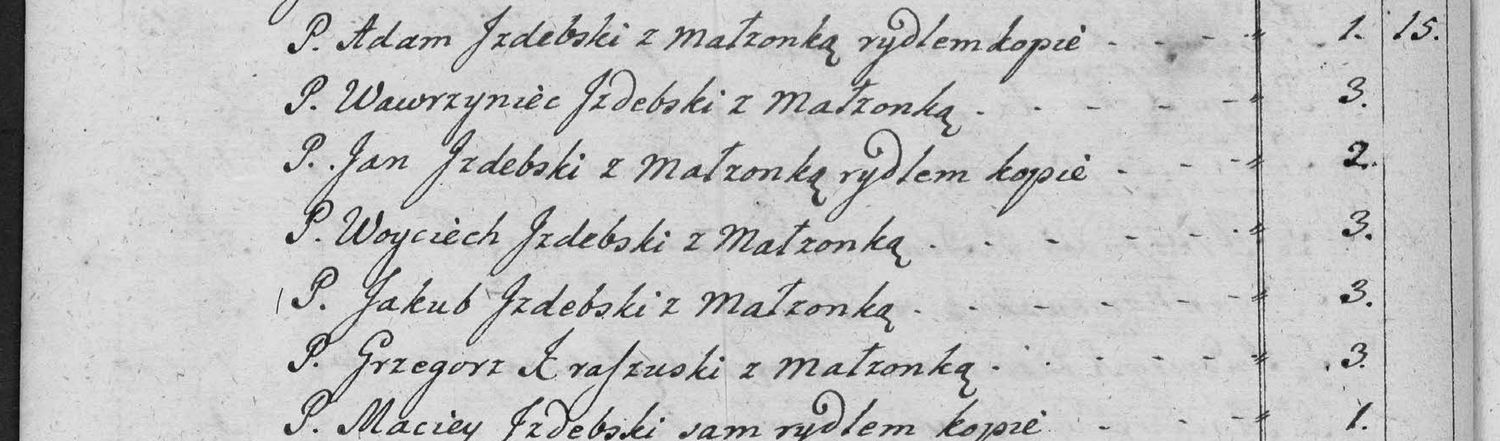 P. Adam Jzdebski z Małzonką rydlem kopie - - - " 1. 15.
P. Wawrzyniec Jzdebski z Małzonką . - - - - " 3.
P. Jan Jzdebski z Małzonką rydlem kopie - - - " 2.
P. Woyciech Jzdebski z Małzonką . - - - - - " 3.
P. Jakub Jzdebski z Małzonką . - - - - - " 3.
P. Grzegorz Kraszuski z Małzonką . - - - - " 3.
P. Maciey Jzdebski sam rydlem kopie - - - " 1.